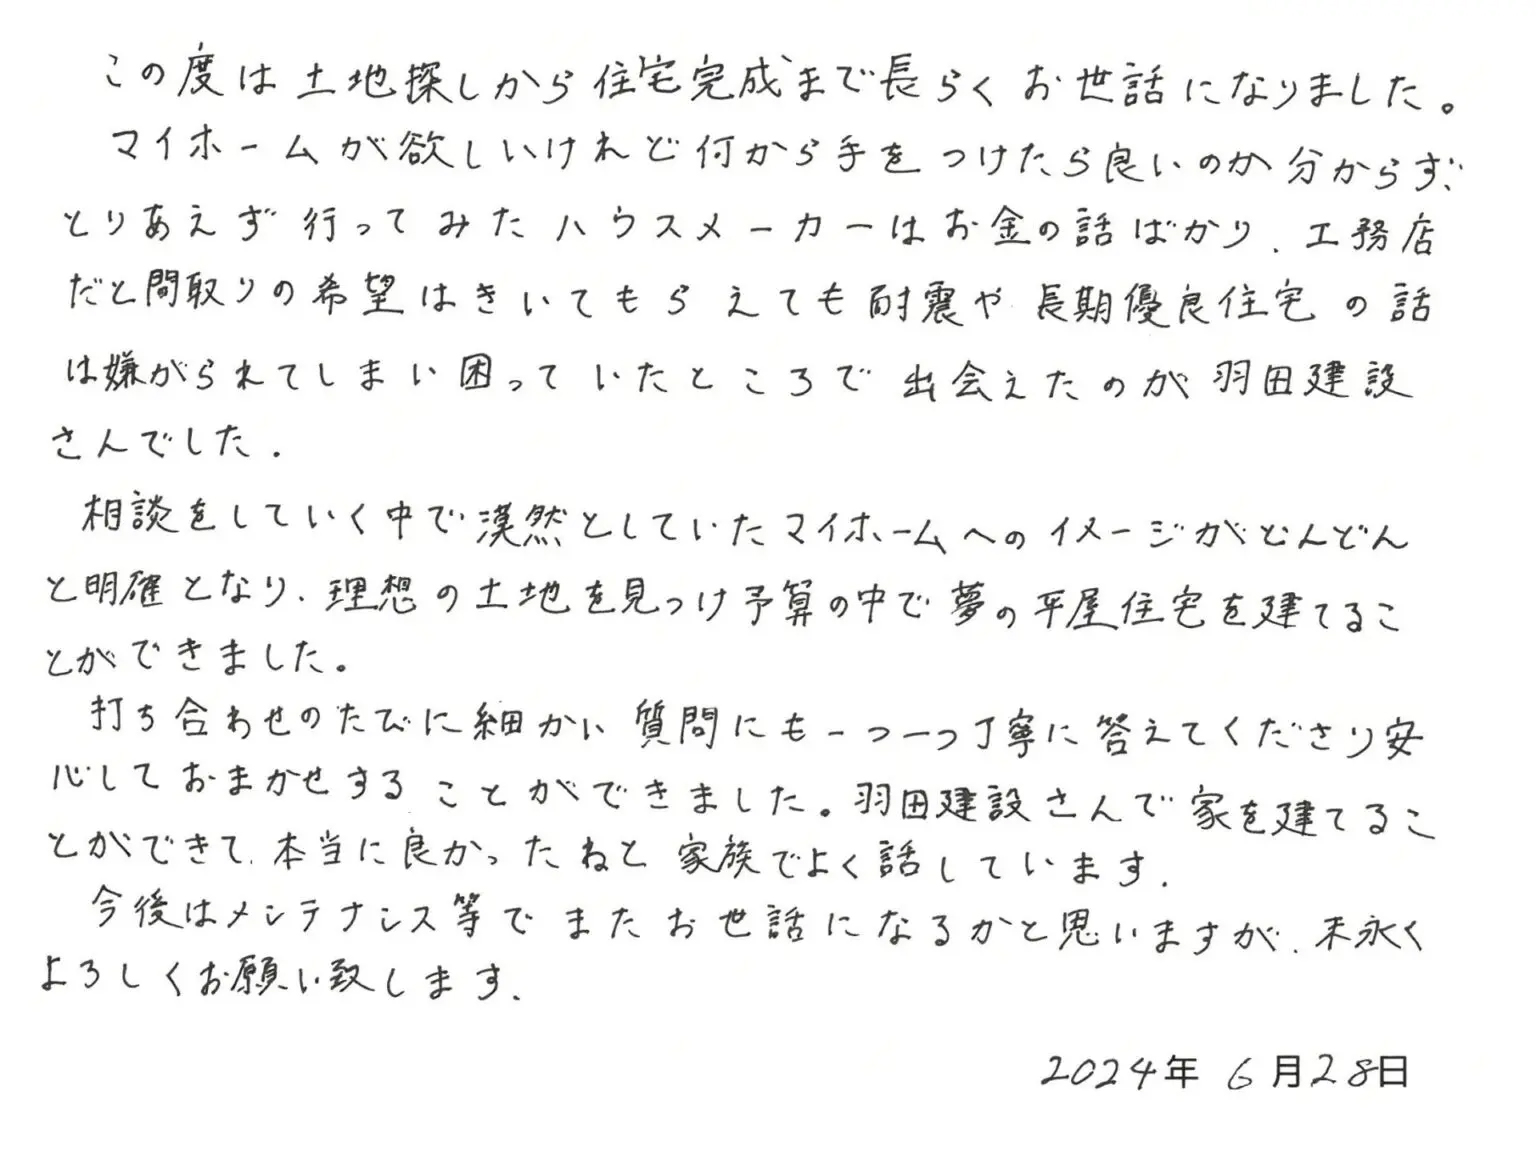 この度は土地探しから住宅完成まで長らくお世話になりました。
マイホームが欲しいけれど何から手をつけたら良いのか分からず、
とりあえず行ってみたハウスメーカーはお金の話ばかり、工務店
だと間取りの希望はきいてもらえても耐震や長期優良住宅の話
は嫌がられてしまい困っていたところで出会えたのが羽田建設
さんでした。
相談をしていく中で漠然としていたマイホームへのイメージがどんどん
と明確となり、理想の土地を見つけ予算の中で夢の平屋住宅を建てるこ
とができました。
打ち合わせのたびに細かい質問にも一つ一つ丁寧に答えてくださり安
心しておまかせすることができました。羽田建設さんで家を建てるこ
とができて、本当に良かったねと家族でよく話しています。
今後はメンテナンス等でまたお世話になるかと思いますが、末永く
よろしくお願い致します。
2024年 6月28日